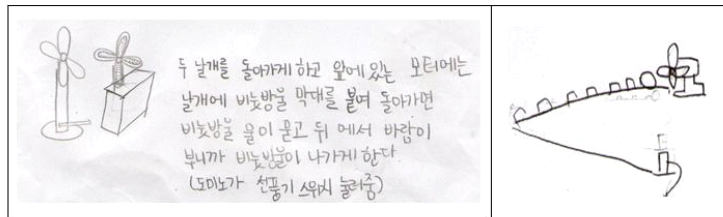 두 날개를 돌아가게 하고 앞에 있는 모터에는
날개에 비눗방울 막대를 붙여 돌아가면
비눗방울 물이 묻고 뒤 에서 바람이
부니까 비눗방울이 나가게 한다
(도미노가 선풍기 스위치 눌러줌)